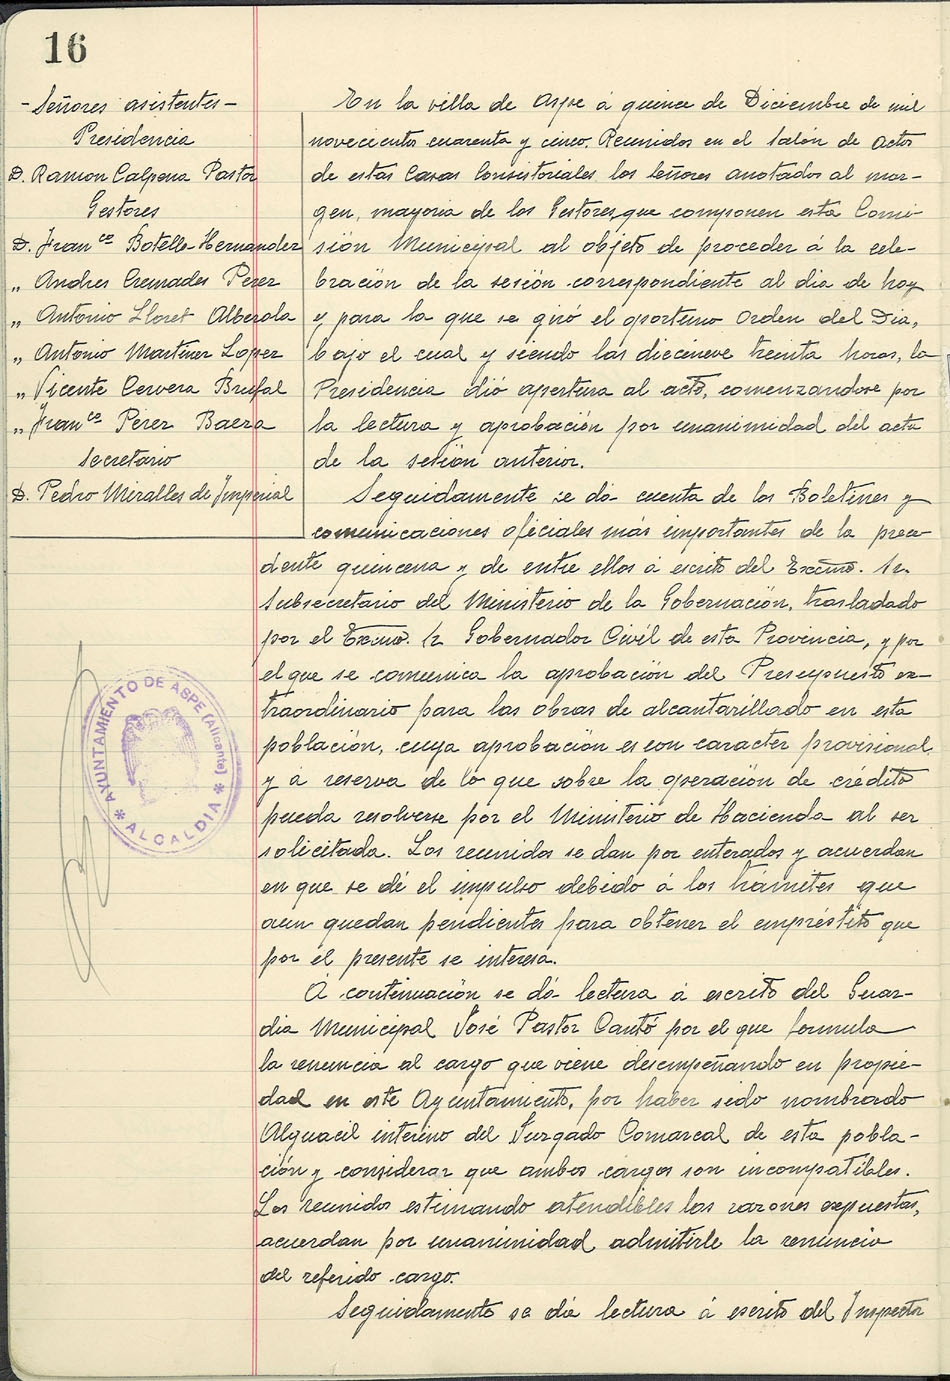 16
- Señores asistentes -
Presidencia
D. Ramon Calpena Pastor
Gestores
D. Franco Botella Hernandez
„ Andres Cremades Perez
„ Antonio Lloret Alberola
„ Antonio Martinez Lopez
„ Vicente Cervera Brufal
„ Franco Perez Baeza
Secretario
D. Pedro Miralles de Imperial
En la villa de Aspe á quince de Diciembre de mil
novecientos cuarenta y cinco. Reunidos en el Salón de actos
de estas Casas Consistoriales los señores anotados al mar-
gen, mayoria de los Gestores que componen esta Comi-
sión Municipal al objeto de proceder á la cele-
bración de la sesión correspondiente al dia de hoy
y para la que se giró el oportuno Orden del Dia,
bajo el cual y siendo las diecinueve treinta horas, la
Presidencia dió apertura al acto, comenzandose por
la lectura y aprobación por unanimidad del acta
de la sesión anterior.
Seguidamente se dá cuenta de los Boletines y
comunicaciones oficiales más importantes de la prece-
dente quincena y de entre ellos á escrito del Excmo. Sr.
Subsecretario del Ministerio de la Gobernación, trasladado
por el Excmo. Sr Gobernador Civil de esta Provincia, y por
el que se comunica la aprobación del Presupuesto ex-
traordinario para las obras de alcantarillado en esta
población, cuya aprobación es con caracter provisional
y á reserva de lo que sobre la operación de crédito
pueda resolverse por el Ministerio de Hacienda al ser
solicitada. Los reunidos se dan por enterados y acuerdan
en que se dé el impulso debido á los trámites que
aun quedan pendientes para obtener el empréstito que
por el presente se interesa.
Á continuación se dá lectura á escrito del Guar-
dia Municipal José Pastor Cantó por el que formula
la renuncia al cargo que viene desempeñando en propie-
dad en este Ayuntamiento, por haber sido nombrado
Alguacil interino del Juzgado Comarcal de esta pobla-
ción y considerar que ambos cargos son incompatibles.
Los reunidos estimando atendibles las razones expuestas,
acuerdan por unanimidad admitirle la renuncia
del referido cargo.
Seguidamente se dia lectura á escrito del Inspector
AYUNTAMIENTO DE ASPE (Alicante)
* ALCALDIA *